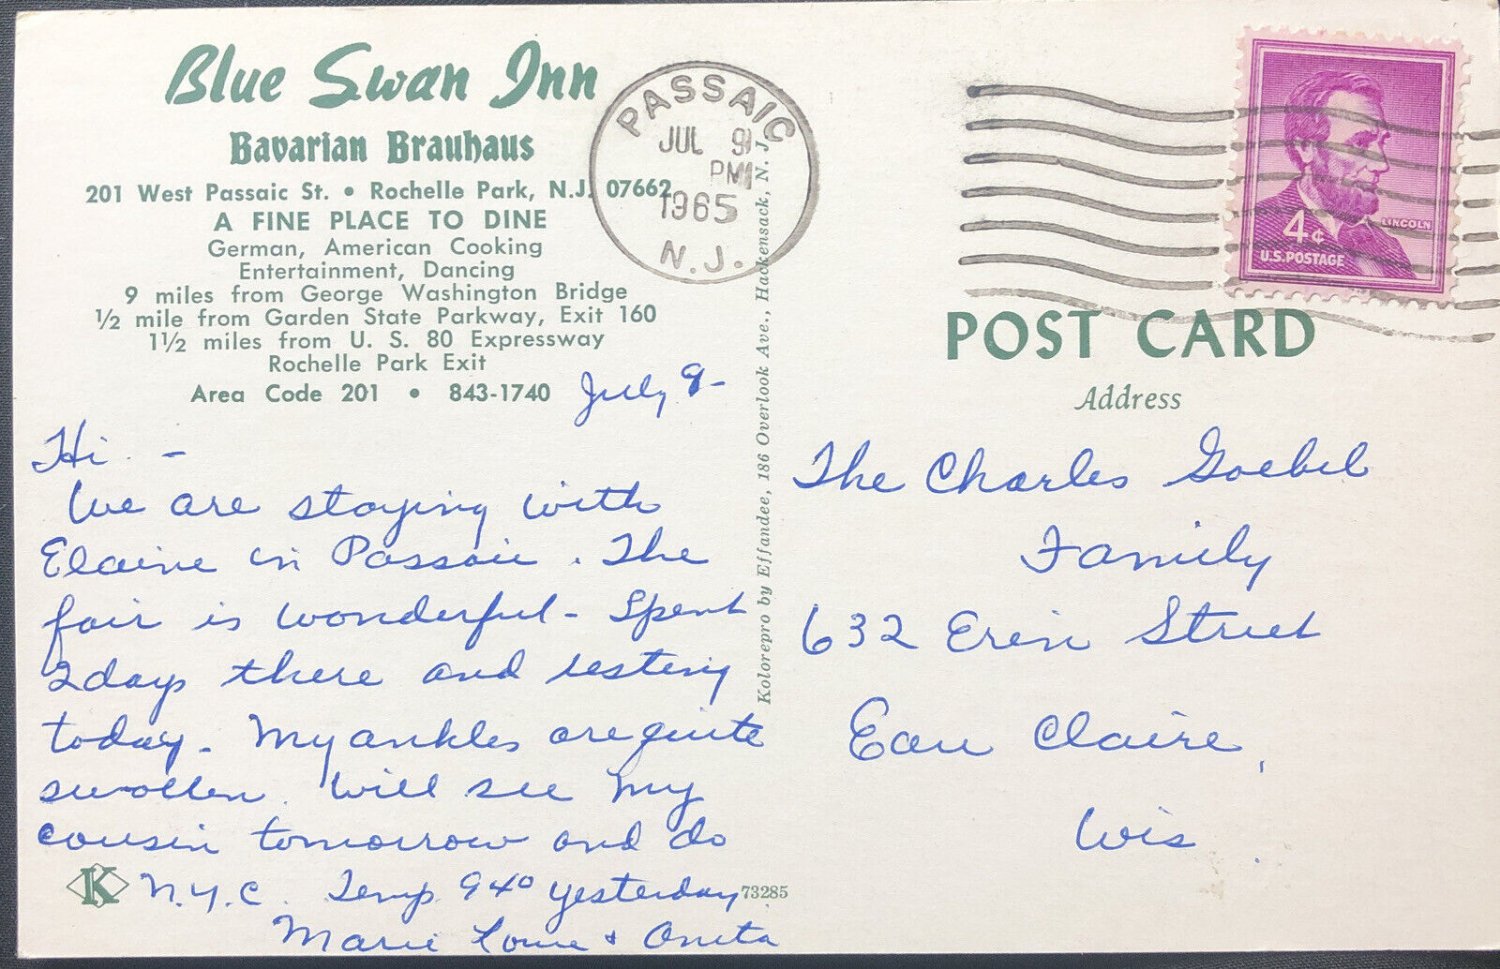 Blue Swan Inn
Bavarian Brauhaus
201 West Passaic St. • Rochelle Park, N.J. 07662
A FINE PLACE TO DINE
German, American Cooking
Entertainment, Dancing
9 miles from George Washington Bridge
½ mile from Garden State Parkway, Exit 160
1½ miles from U. S. 80 Expressway
Rochelle Park Exit
Area Code 201 • 843-1740
July 9-
Hi -
We are staying with
Elaine in Passaic. The
fair is wonderful - Spent
2 days there and resting
today. My ankles are quite
swollen. Will see my
cousin tomorrow and do
N.Y.C. Temp. 94° yesterday.
Marie & Anita
K
73285
Kolorepro by Effandee, 186 Overlook Ave., Hackensack, N. J.
PASSAIC
JUL 9
PM
1965
N.J.
LINCOLN
4¢
U.S. POSTAGE
POST CARD
Address
The Charles Goebel
Family
632 Erin Street
Eau Claire,
Wis.